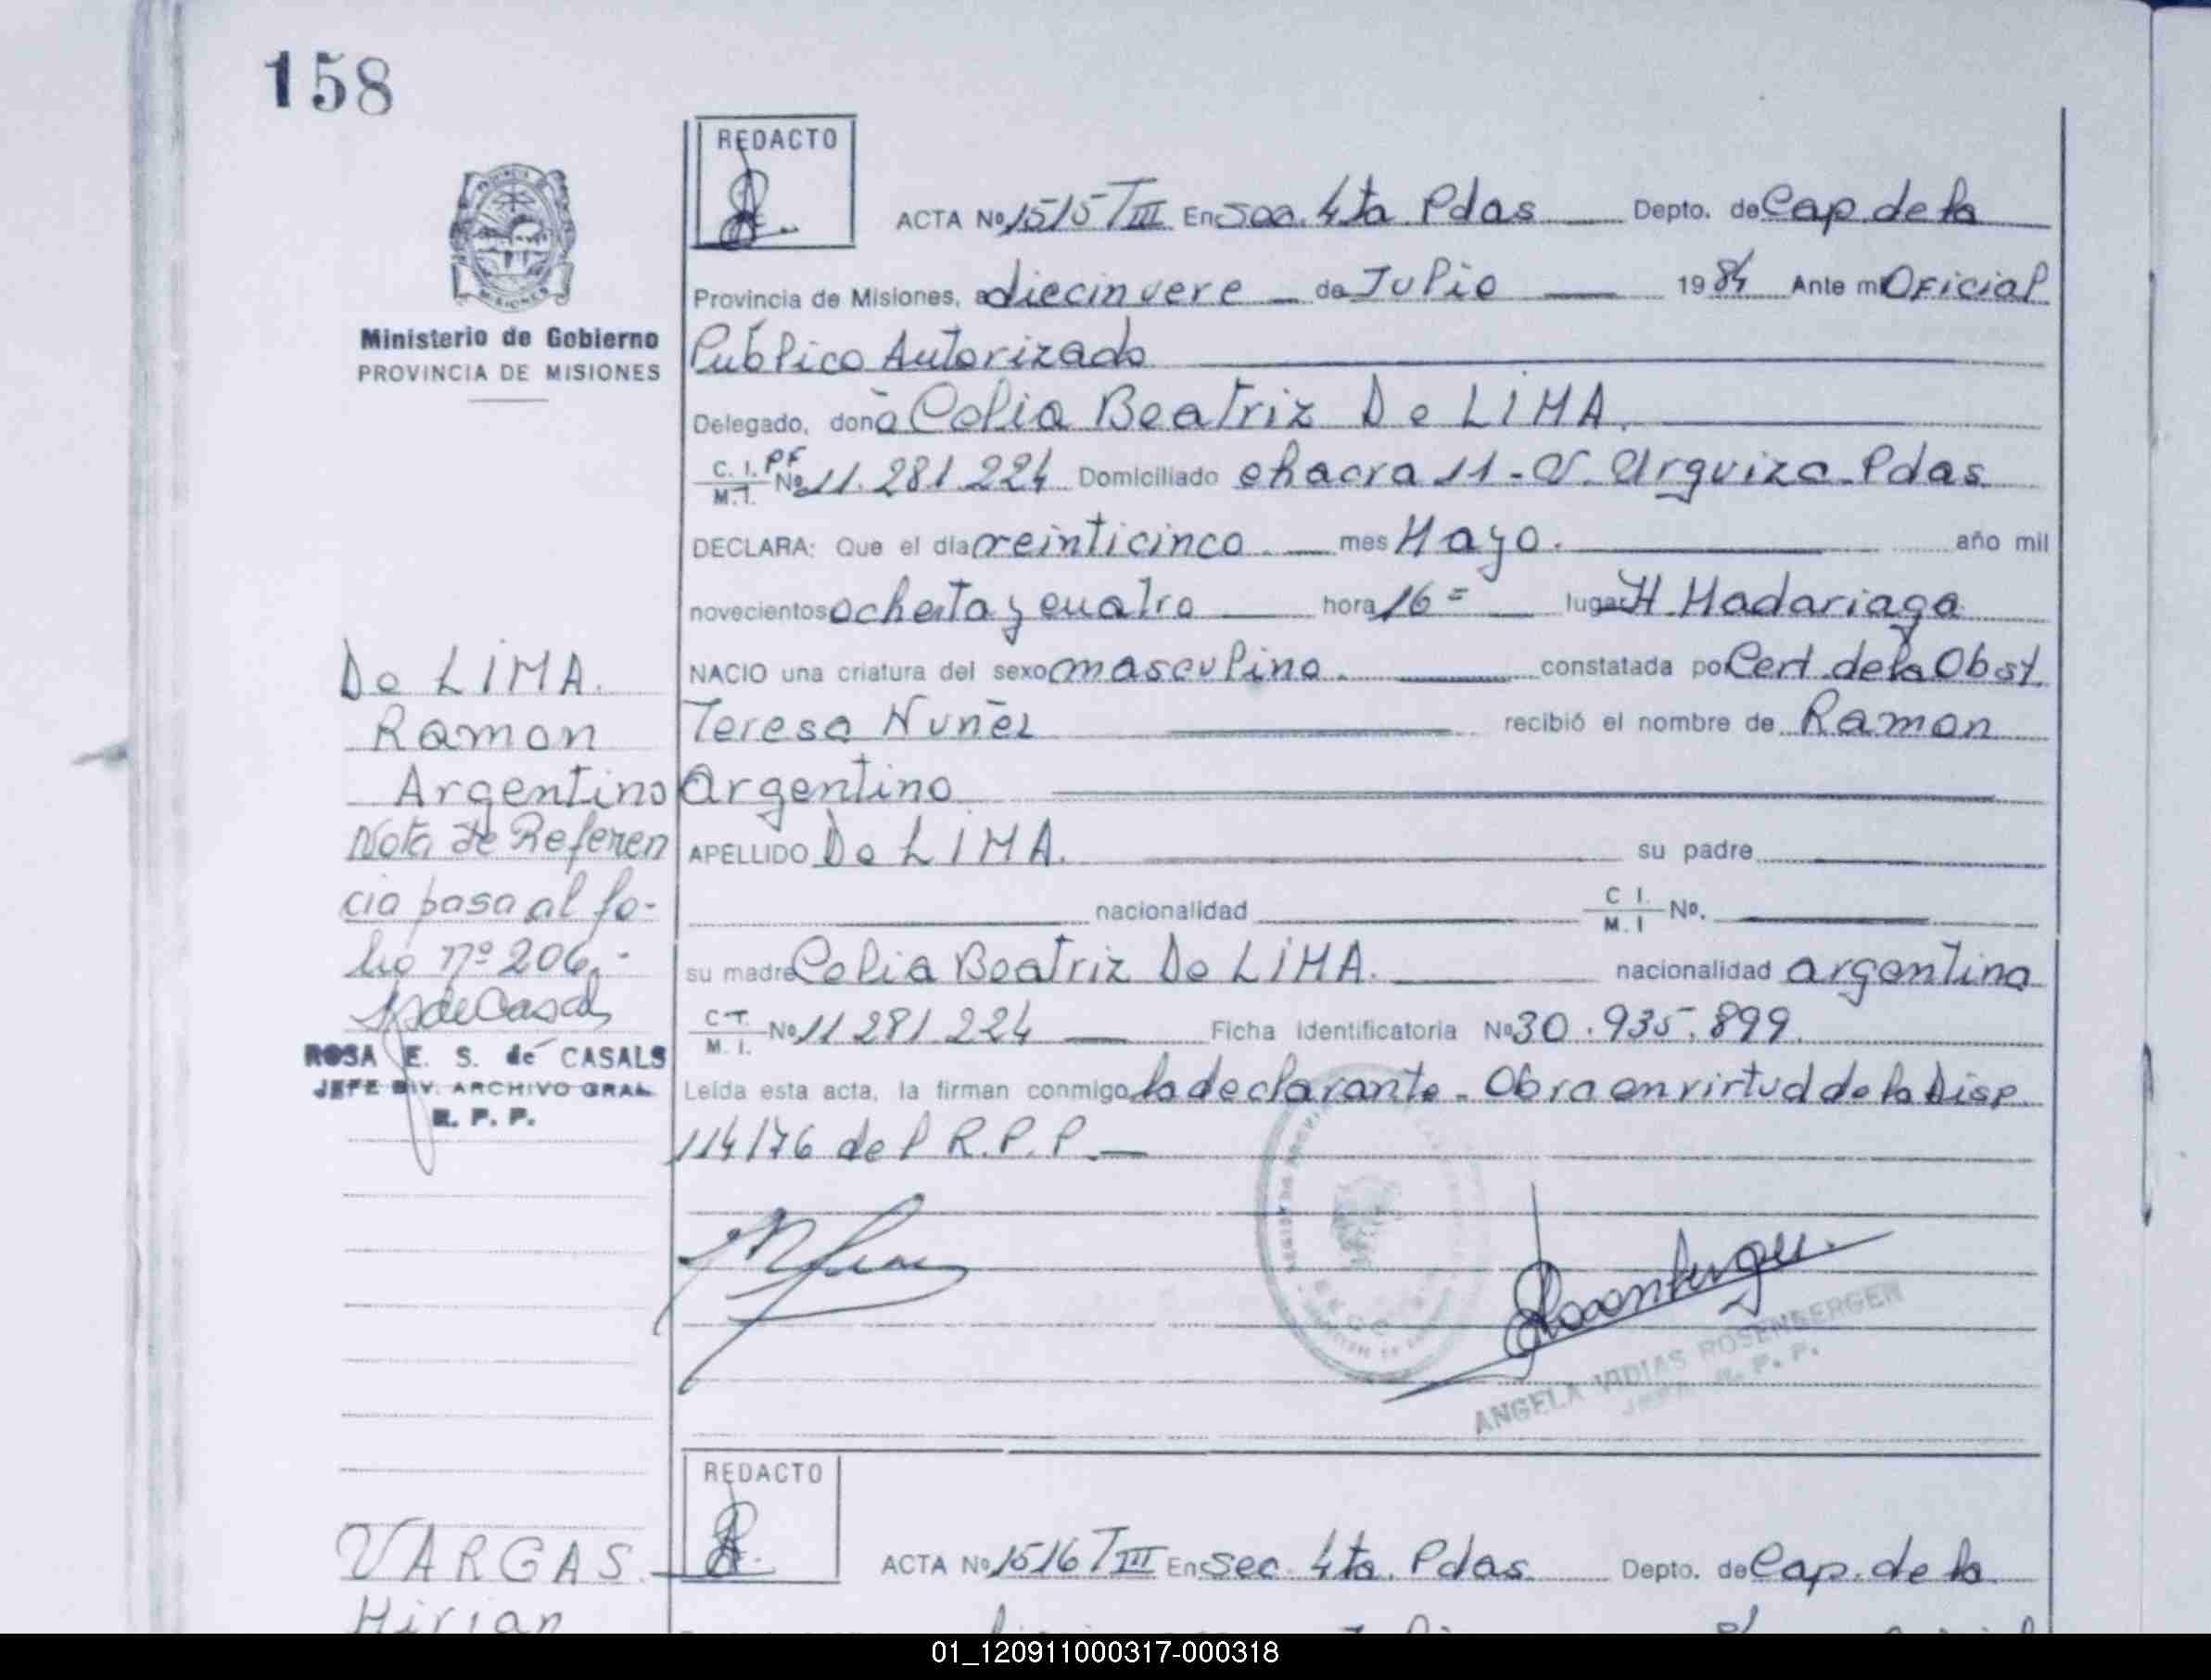 158
REDACTO
ACTA Nº 1515 TIII En Secc. 4ta Pdas Depto. de Cap. de la
Provincia de Misiones, a diecinueve de Julio 1984 Ante mi Oficial
Público Autorizado
Delegado, doña Celia Beatriz De LIMA.
C. I. PF
M. I. Nº 11.281.224 Domiciliado chacra 11 - V. Urquiza - Pdas
DECLARA: Que el día veinticinco mes Mayo. año mil
novecientos ochenta y cuatro hora 16= lugar H Madariaga
NACIO una criatura del sexo masculino. constatada por Cert. de la Obst.
Teresa Nuñez recibió el nombre de Ramon
Argentino
APELLIDO De LIMA. su padre
nacionalidad C I. M. I Nº.
su madre Celia Beatriz De LIMA. nacionalidad argentina
C. I. M. I. Nº 11 281.224 Ficha Identificatoria Nº 30.935.899.
Leída esta acta, la firman conmigo la declarante. Obra en virtud de la Disp
114/76 del R.P.P.
ANGELA VIDIAS ROSENBERGER
R. P. P.
Ministerio de Gobierno
PROVINCIA DE MISIONES
De LIMA.
Ramon
Argentino
Nota de Referen
cia pasa al fo-
lio nº 206.-
ROSA E. S. de CASALS
JEFE DIV. ARCHIVO GRAL
R. P. P.
REDACTO
ACTA Nº 1516 TIII En Sec. 4ta. Pdas. Depto. de Cap. de la
VARGAS
Mirian
01_120911000317-000318